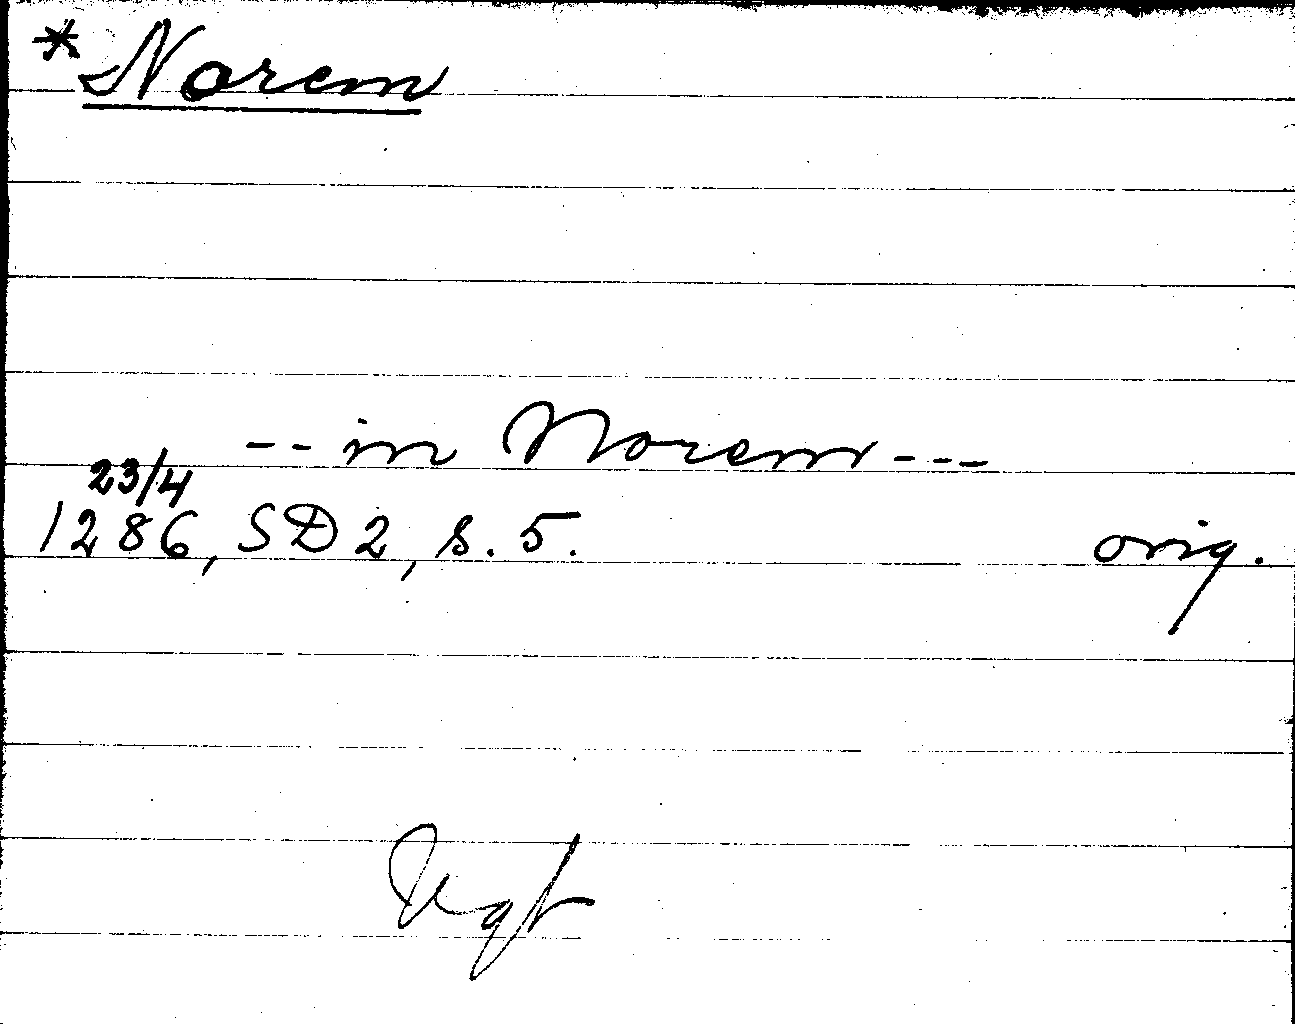 * Norem
-- in Norem ---
23/4
1286, SD 2, s. 5.
orig.
Vgt